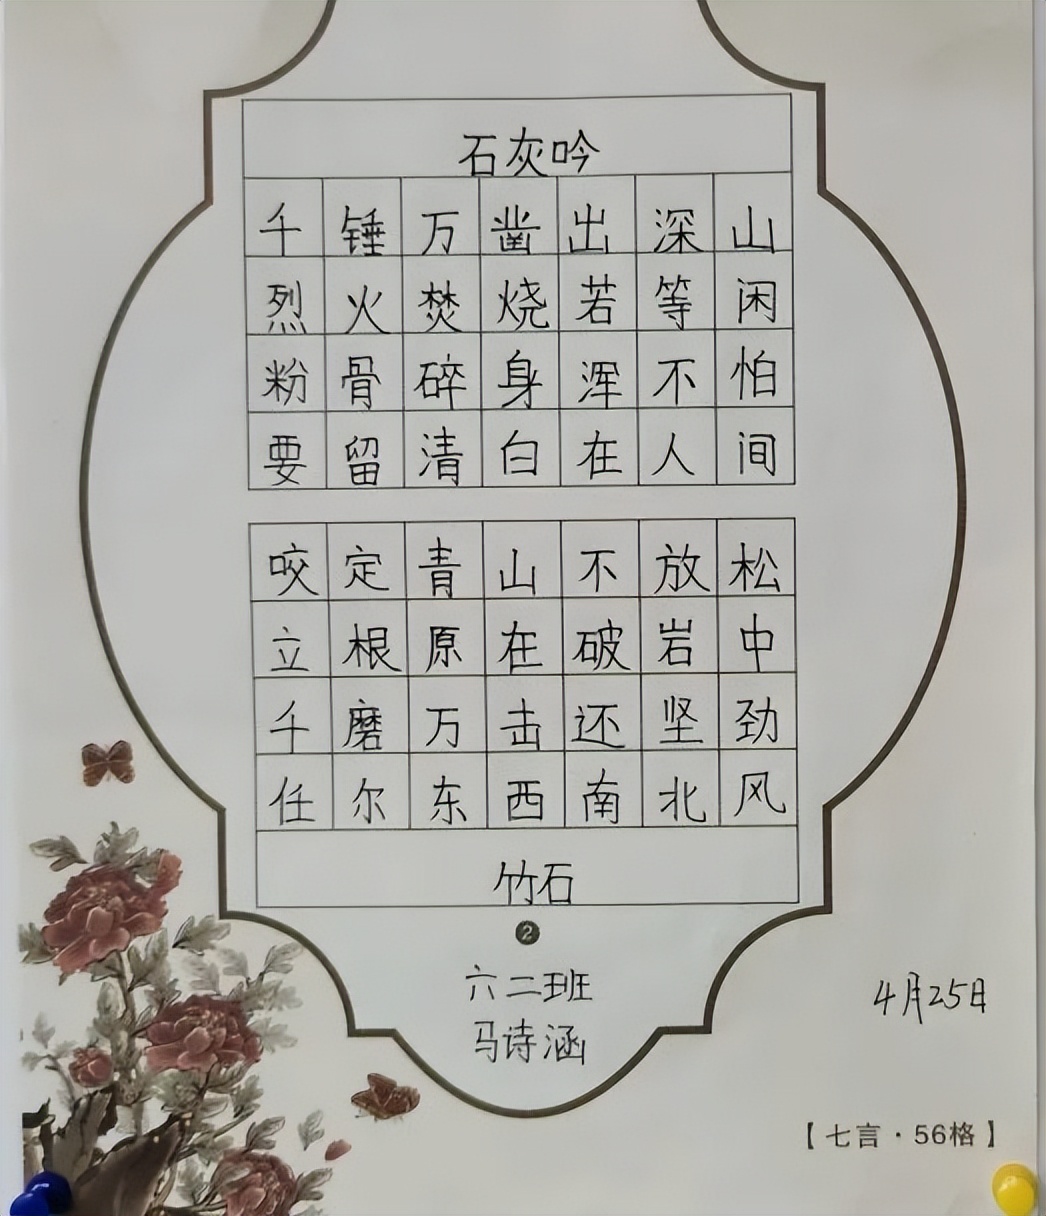 石灰吟
千锤万凿出深山
烈火焚烧若等闲
粉骨碎身浑不怕
要留清白在人间
咬定青山不放松
立根原在破岩中
千磨万击还坚劲
任尔东西南北风
竹石
2
六二班
马诗涵
4月25日
【七言·56格】